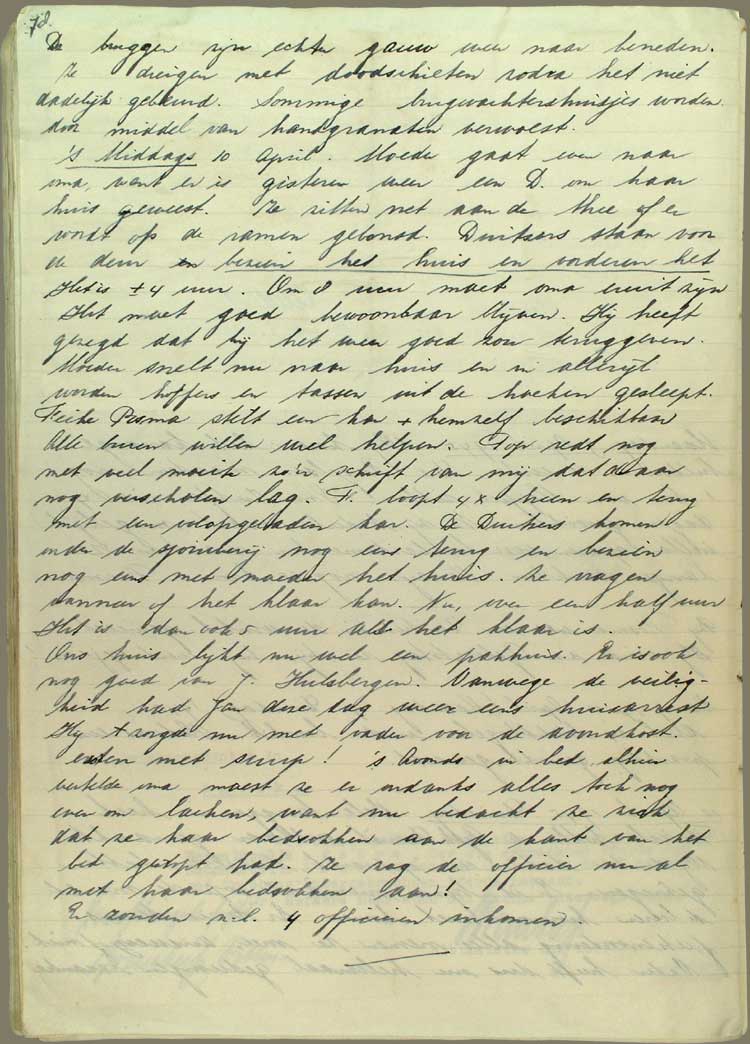 78.
De bruggen zijn echter gauw weer naar beneden.
Ze dreigen met doodschieten zodra het niet
dadelijk gebeurd. Sommige brugwachtershuisjes worden
door middel van handgranaten verwoest.
's Middags 10 April. Moeder gaat even naar
oma, want er is gisteren weer een D. om haar
huis geweest. Ze zitten net aan de thee of er
wordt op de ramen gebonsd. Duitsers staan voor
de deur en bezien het huis en vorderen het
Het is ± 4 uur. Om 8 uur moet oma eruit zijn
Het moet goed bewoonbaar blijven. Hij heeft
gezegd dat hij het weer goed zou teruggeven.
Moeder snelt nu naar huis en in allerijl
worden koffers en tassen uit de hoeken gesleept.
Feike Posma stelt een kar + hemzelf beschikbaar
Alle buren willen wel helpen. Pop redt nog
met veel moeite zo'n schrift van mij dat daar
nog verscholen lag. F. loopt 4 x heen en terug
met een volopgeladen kar. De Duitsers komen
onder de sjouwerij nog eens terug en bezien
nog eens met moeder het huis. Ze vragen
wanneer of het klaar kan. Nu, over een half uur
Het is dan ook 5 uur als het klaar is.
Ons huis lijkt nu wel een pakhuis. Er is ook
nog goed van J. Hulsbergen. Vanwege de veilig-
heid had Jan deze dag weer eens huisarrest
Hij zorgde nu met vader voor de avondkost.
eten met siroop! 's Avonds in bed, alhier
vertelde oma moest ze er ondanks alles toch nog
even om lachen, want nu bedacht ze zich
dat ze haar bedsokken aan de kant van het
bed gestopt had. Ze zag de officier nu al
met haar bedsokken aan!
Er zouden n.l. 4 officieren inkomen.